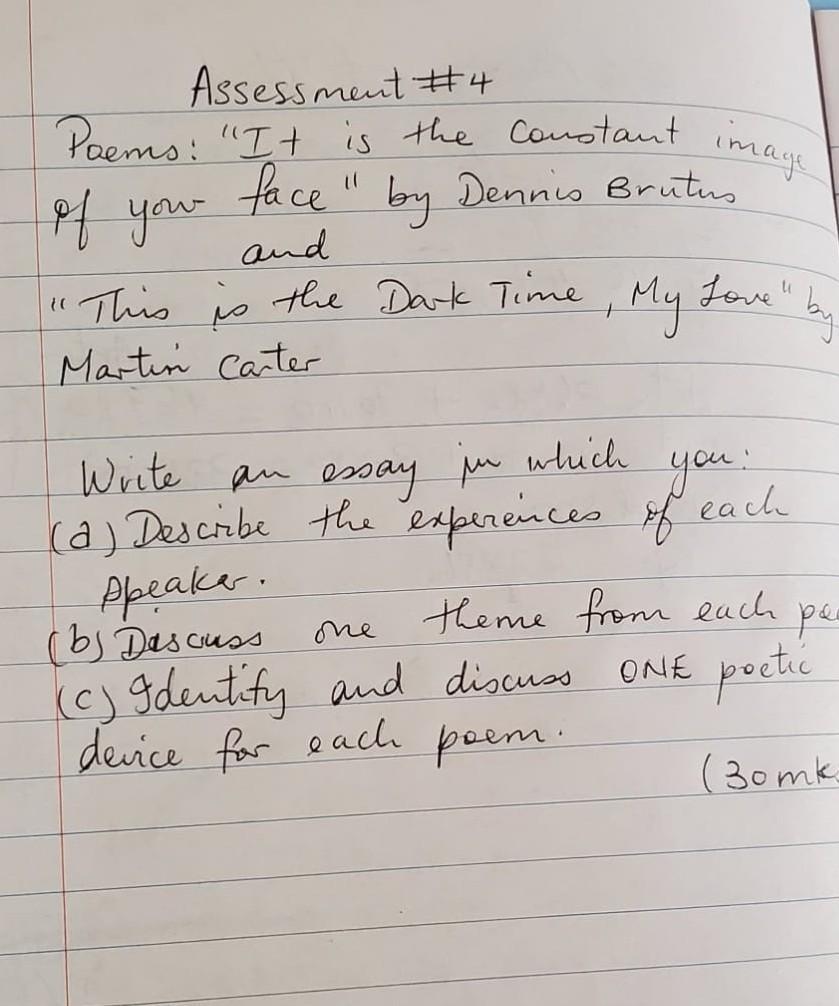 Assessment #4
Poems: "It is the Constant image
of your face" by Dennis Brutus
and
"This is the Dark Time, My Love" by
Martin Carter
Write an essay in which you:
(a) Describe the experiences of each
speaker.
(b) Discuss one theme from each
(c) Identify and discuss ONE poetic
device for each poem.
(30 mk